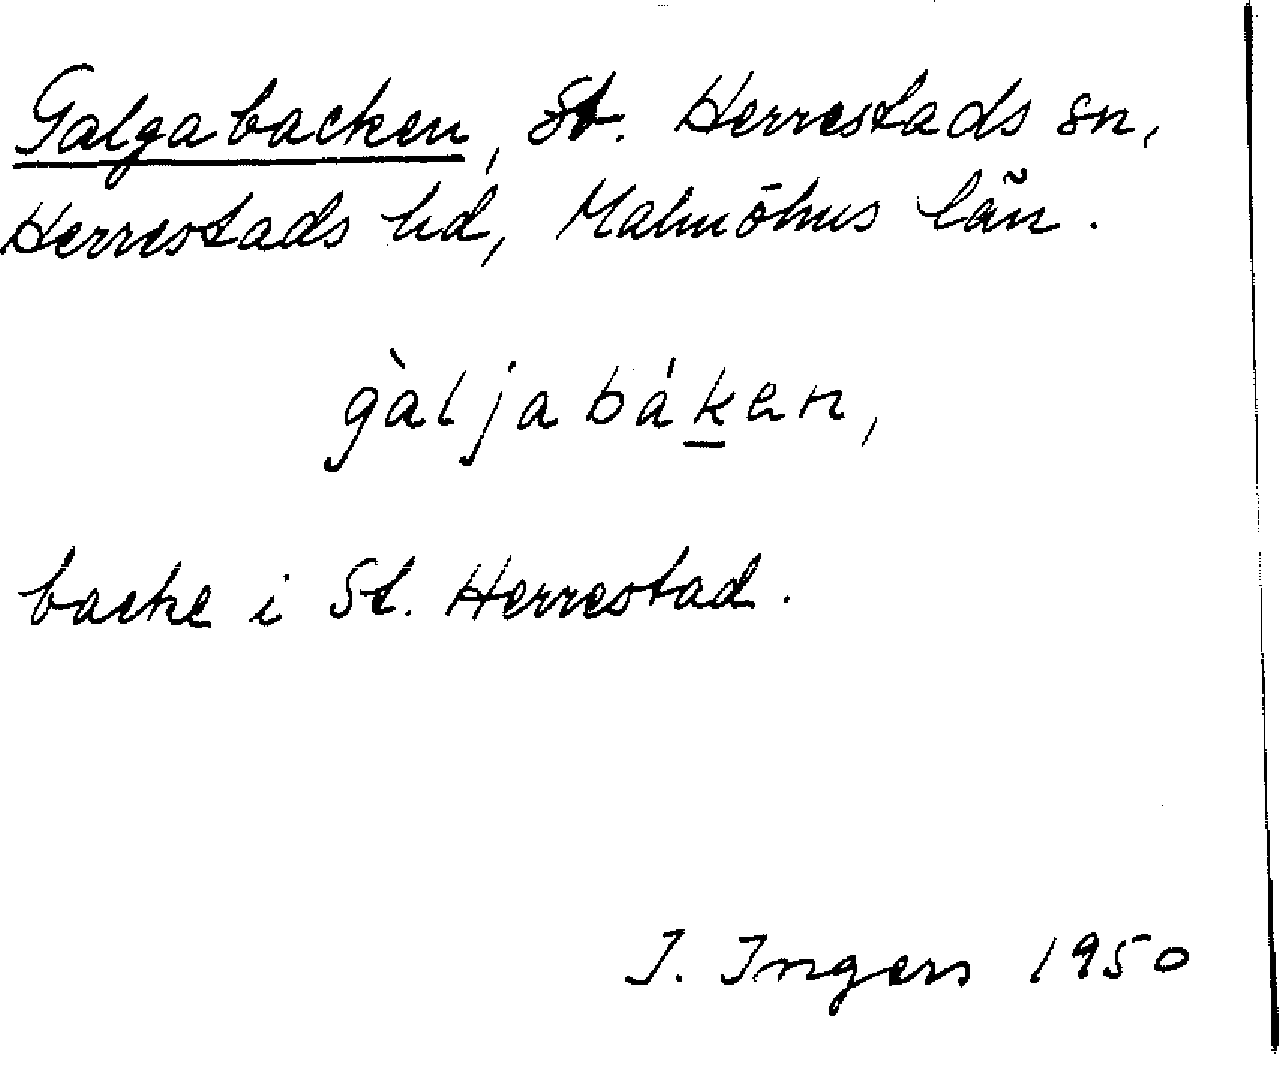 Galgabacken, St. Herrestads sn,
Herrestads hd, Malmöhus län.
gàljabák̲en,
backe i St. Herrestad.
I. Ingers 1950